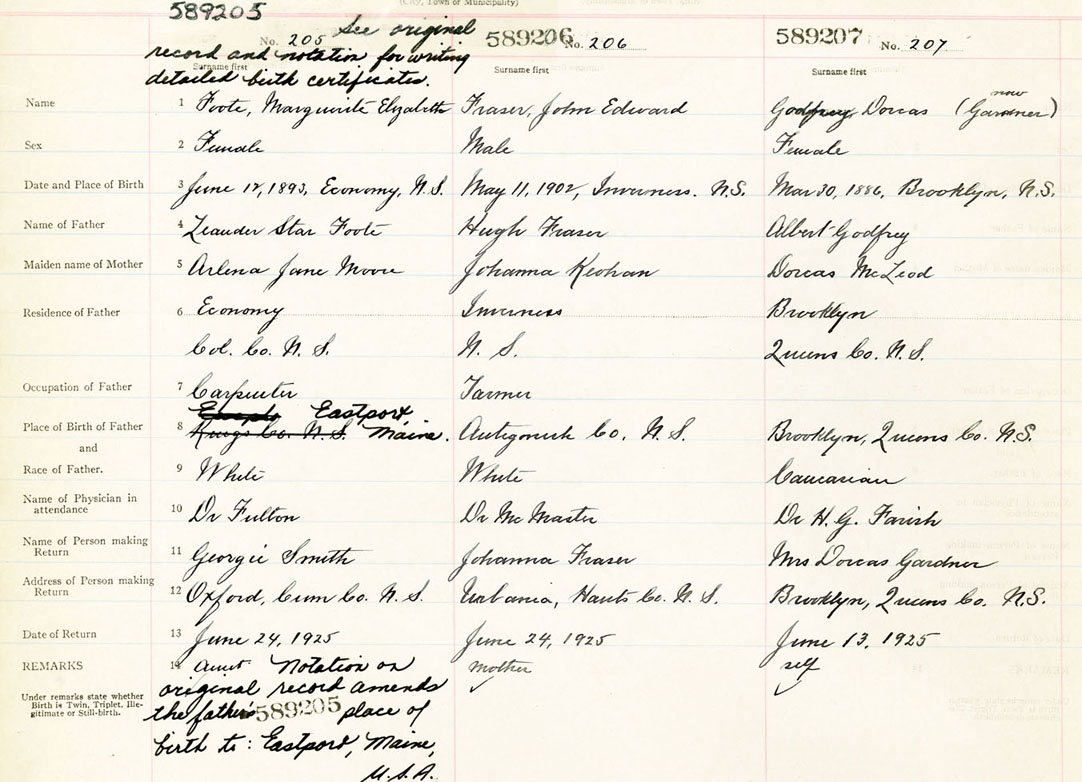 (City, Town or Municipality)
589205
No. 205 See original
record and notation for writing
Surname first
detailed birth certificates.
589206 No. 206
Surname first
589207 No. 207
Surname first
Name 1 Foote, Marguerite Elizabeth Fraser, John Edward Godfrey, Dorcas (now Gardner)
Sex 2 Female Male Female
Date and Place of Birth 3 June 12, 1893, Economy, N.S. May 11, 1902, Inverness. N.S. Mar 30, 1886, Brooklyn, N.S.
Name of Father 4 Leander Star Foote Hugh Fraser Albert Godfrey
Maiden name of Mother 5 Arlena Jane Moore Johanna Keohan Dorcas McLeod
Residence of Father 6 Economy Inverness Brooklyn
Col. Co. N. S. N. S. Queens Co. N. S.
Occupation of Father 7 Carpenter Farmer
Eastport
Place of Birth of Father 8 Kings Co. N. S. Maine. Antigonish Co. N. S. Brooklyn, Queens Co. N.S.
and
Race of Father. 9 White White Caucasian
Name of Physician in
attendance 10 Dr Fulton Dr McMaster Dr H. G. Farish
Name of Person making
Return 11 Georgie Smith Johanna Fraser Mrs Dorcas Gardner
Address of Person making
Return 12 Oxford, Cum Co. N. S. Urbania, Hants Co. N. S. Brooklyn, Queens Co. N.S.
Date of Return 13 June 24, 1925 June 24, 1925 June 13, 1925
REMARKS 14 Aunt Notation on mother self
original record amends
Under remarks state whether
Birth is Twin, Triplet, Ille-
gitimate or Still-birth.
the father's 589205 place of
birth to: Eastport, Maine,
U.S.A.